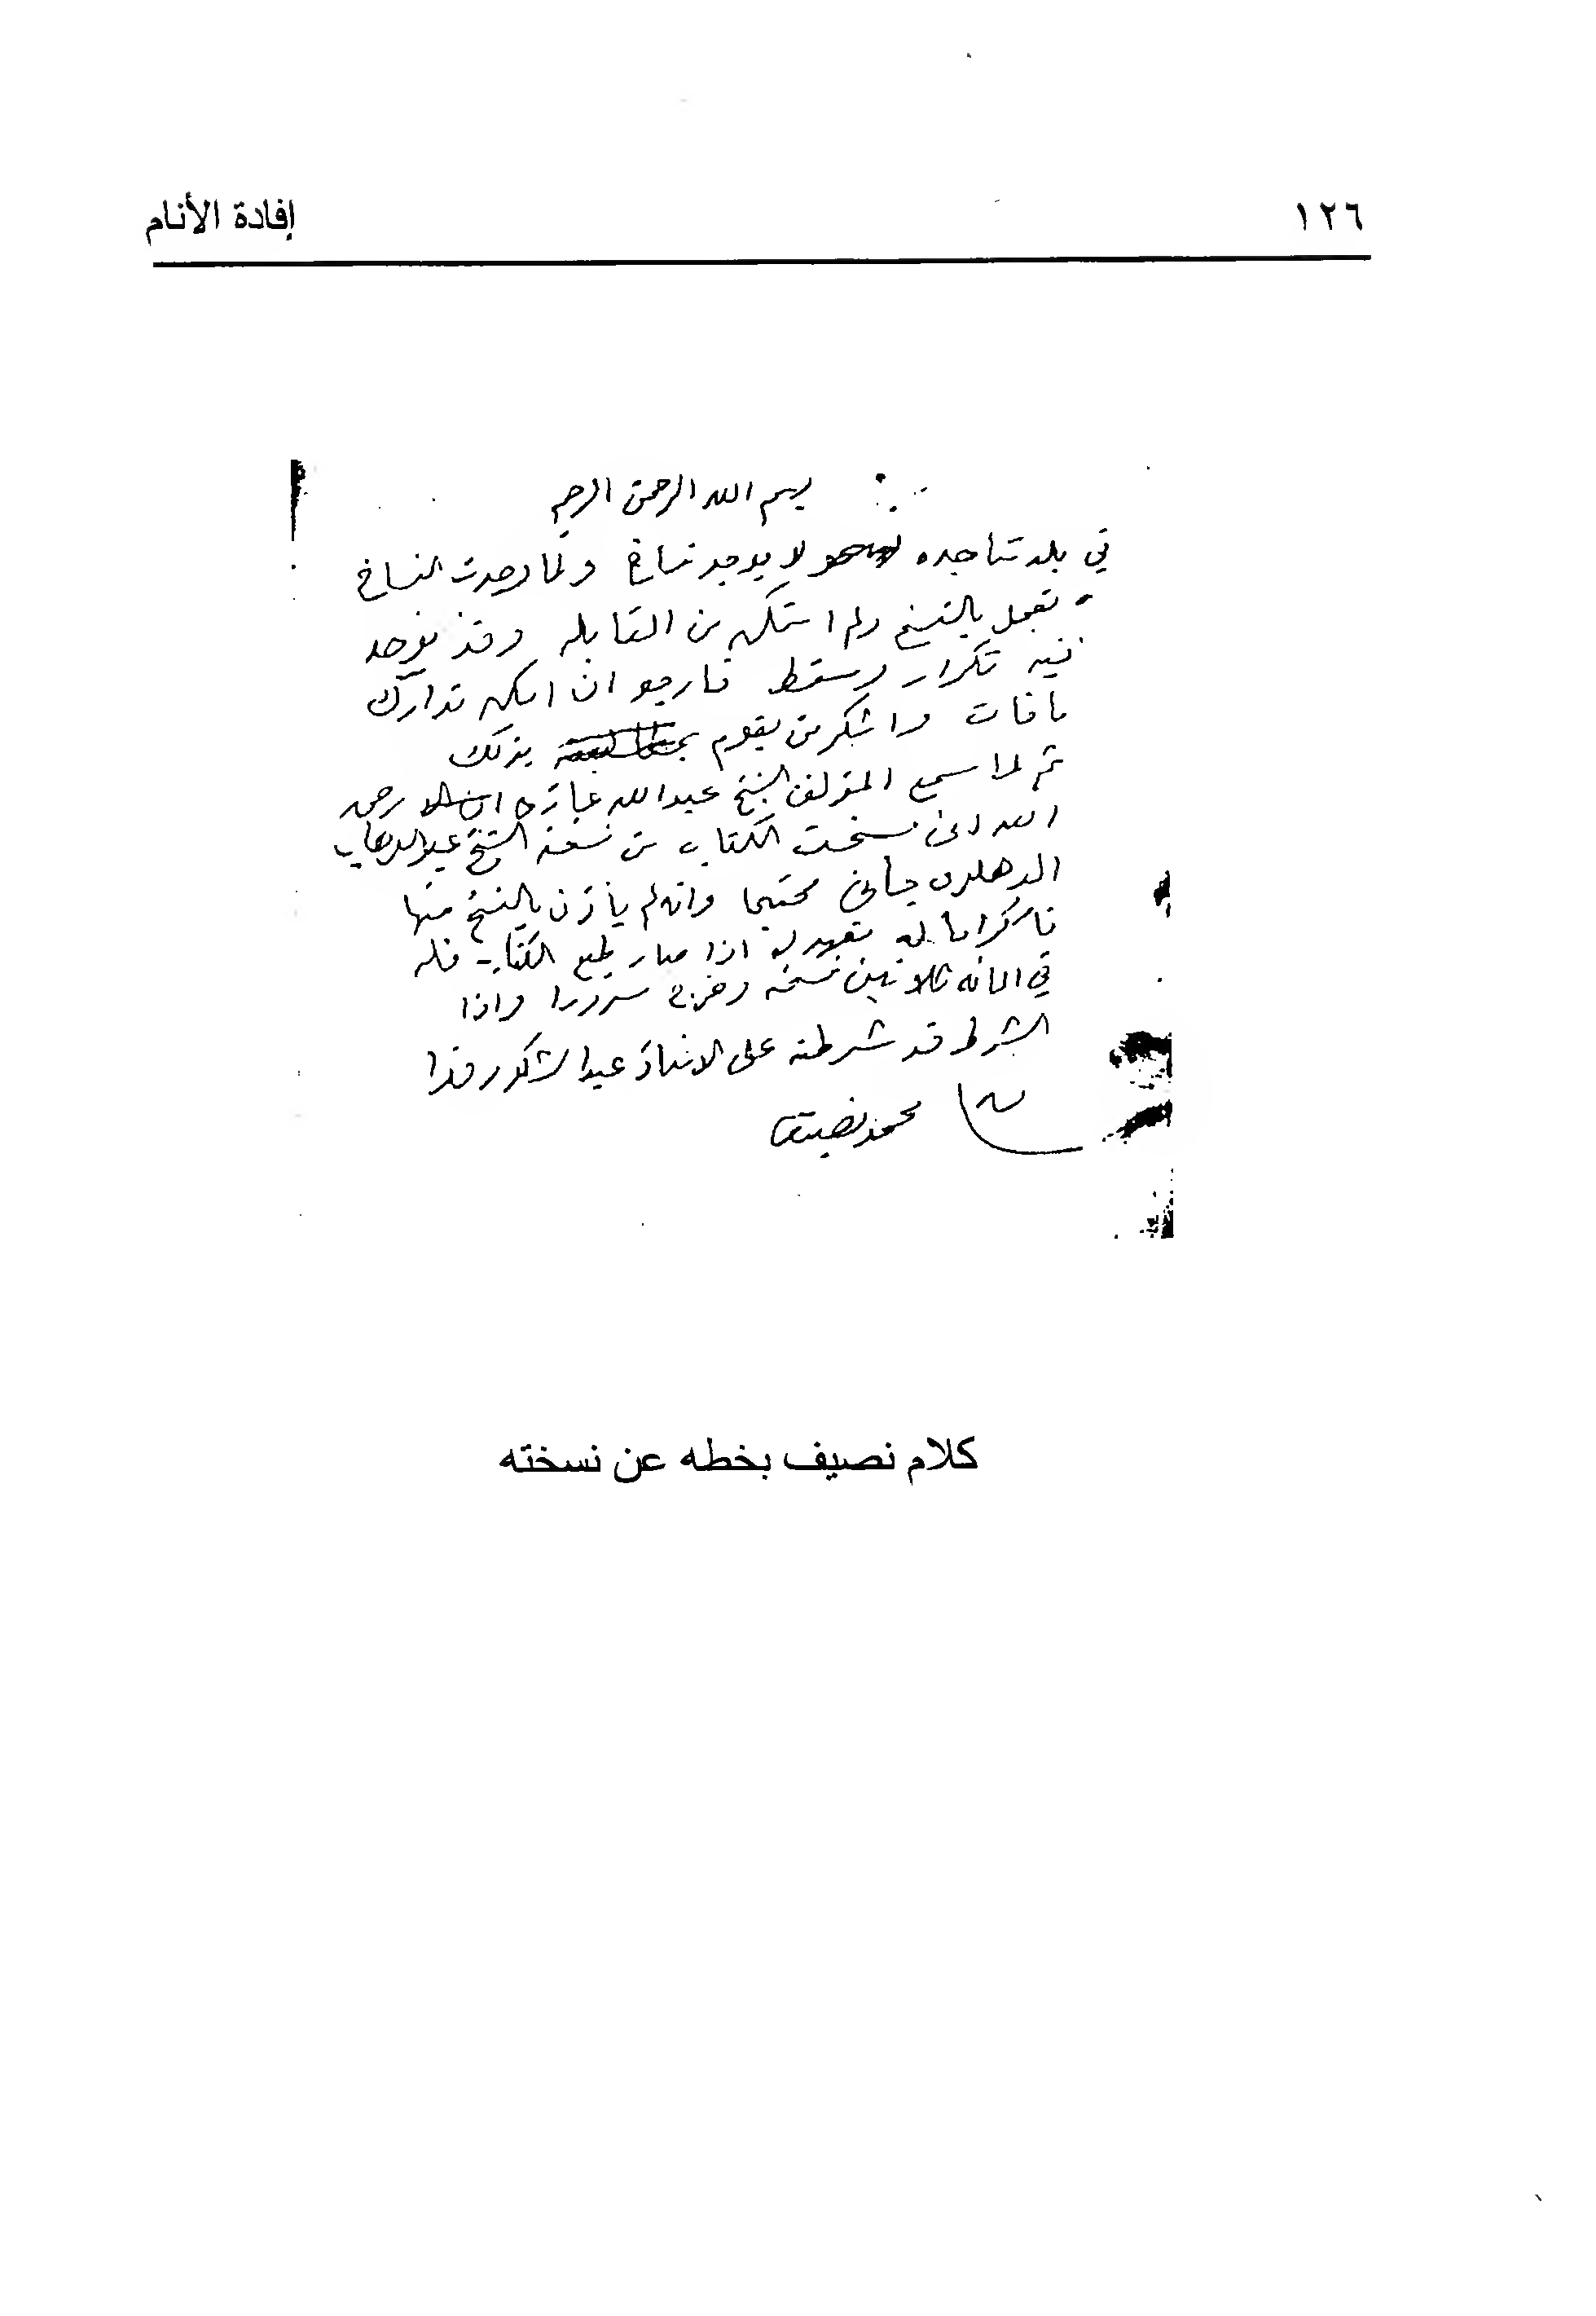 ١٢٦
إفادة الأنام
بسم الله الرحمن الرحيم
في بلدتنا جده لا يوجد نساخ ولما وجدت النساخ
تعجل بالنسخ ولم اتمكن من المقابله وقد يوجد
فيه تكرار وسقط فارجو ان امكن تدارك
ما فات واشكر من يقوم بذلك
ثم لما سمع المؤلف الشيخ عبدالله غازي رحمه
الله انى نسخت الكتاب من نسخة الشيخ عبدالوهاب
الدهلوى جانى محتجا وانه لم ياذن بالنسخ منها
فاكراما له تعهد له اذا صار طبع الكتاب فله
في المائه ثلاثين نسخه وخرج مسرورا واذا
الشرط قد شرطته على الاستاذ عبدالشكور فدا
محمد نصيف
كلام نصيف بخطه عن نسخته